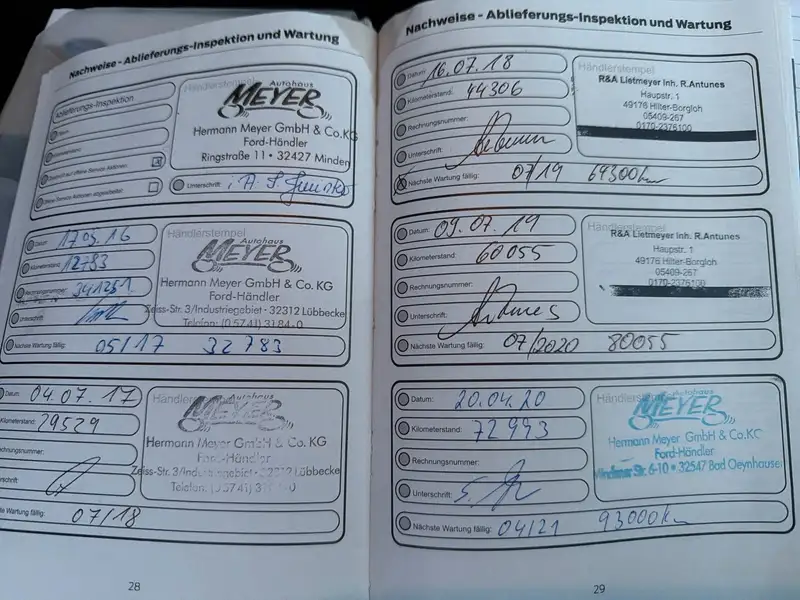 Nachweise - Ablieferungs-Inspektion und Wartung
Ablieferungs-Inspektion
Händlerstempel
Autohaus
MEYER
Hermann Meyer GmbH & Co.KG
Ford-Händler
Ringstraße 11 • 32427 Minden
Unterschrift:
Datum: 17.05.16
Kilometerstand: 12783
Rechnungsnummer: 341251
Unterschrift:
Nächste Wartung fällig: 05/17 32783
Händlerstempel
Autohaus
MEYER
Hermann Meyer GmbH & Co. KG
Ford-Händler
Zeiss-Str. 3/Industriegebiet · 32312 Lübbecke
Telefon: (05741) 3184-0
Datum: 04.07.17
Kilometerstand: 29529
Rechnungsnummer:
Unterschrift
Nächste Wartung fällig: 07/18
Autohaus
MEYER
Hermann Meyer GmbH & Co. KG
Ford-Händler
Zeiss-Str. 3/Industriegebiet · 32312 Lübbecke
28
Nachweise - Ablieferungs-Inspektion und Wartung
Datum: 16.07.18
Kilometerstand: 44306
Rechnungsnummer:
Unterschrift: Antunes
Nächste Wartung fällig: 07/19 69300km
Händlerstempel
R&A Lietmeyer Inh. R.Antunes
Haupstr. 1
49176 Hilter-Borgloh
05409-267
0170-2375100
Datum: 09.07.19
Kilometerstand: 60055
Rechnungsnummer:
Unterschrift: Antunes
Nächste Wartung fällig: 07/2020 80055
Händlerstempel
R&A Lietmeyer Inh. R.Antunes
Haupstr. 1
49176 Hilter-Borgloh
05409-267
0170-2375100
Datum: 20.04.20
Kilometerstand: 72993
Rechnungsnummer:
Unterschrift:
Nächste Wartung fällig: 04/21 93000km
Autohaus
MEYER
Hermann Meyer GmbH & Co.KG
Ford-Händler
Mindener Str. 6-10 • 32547 Bad Oeynhausen
29